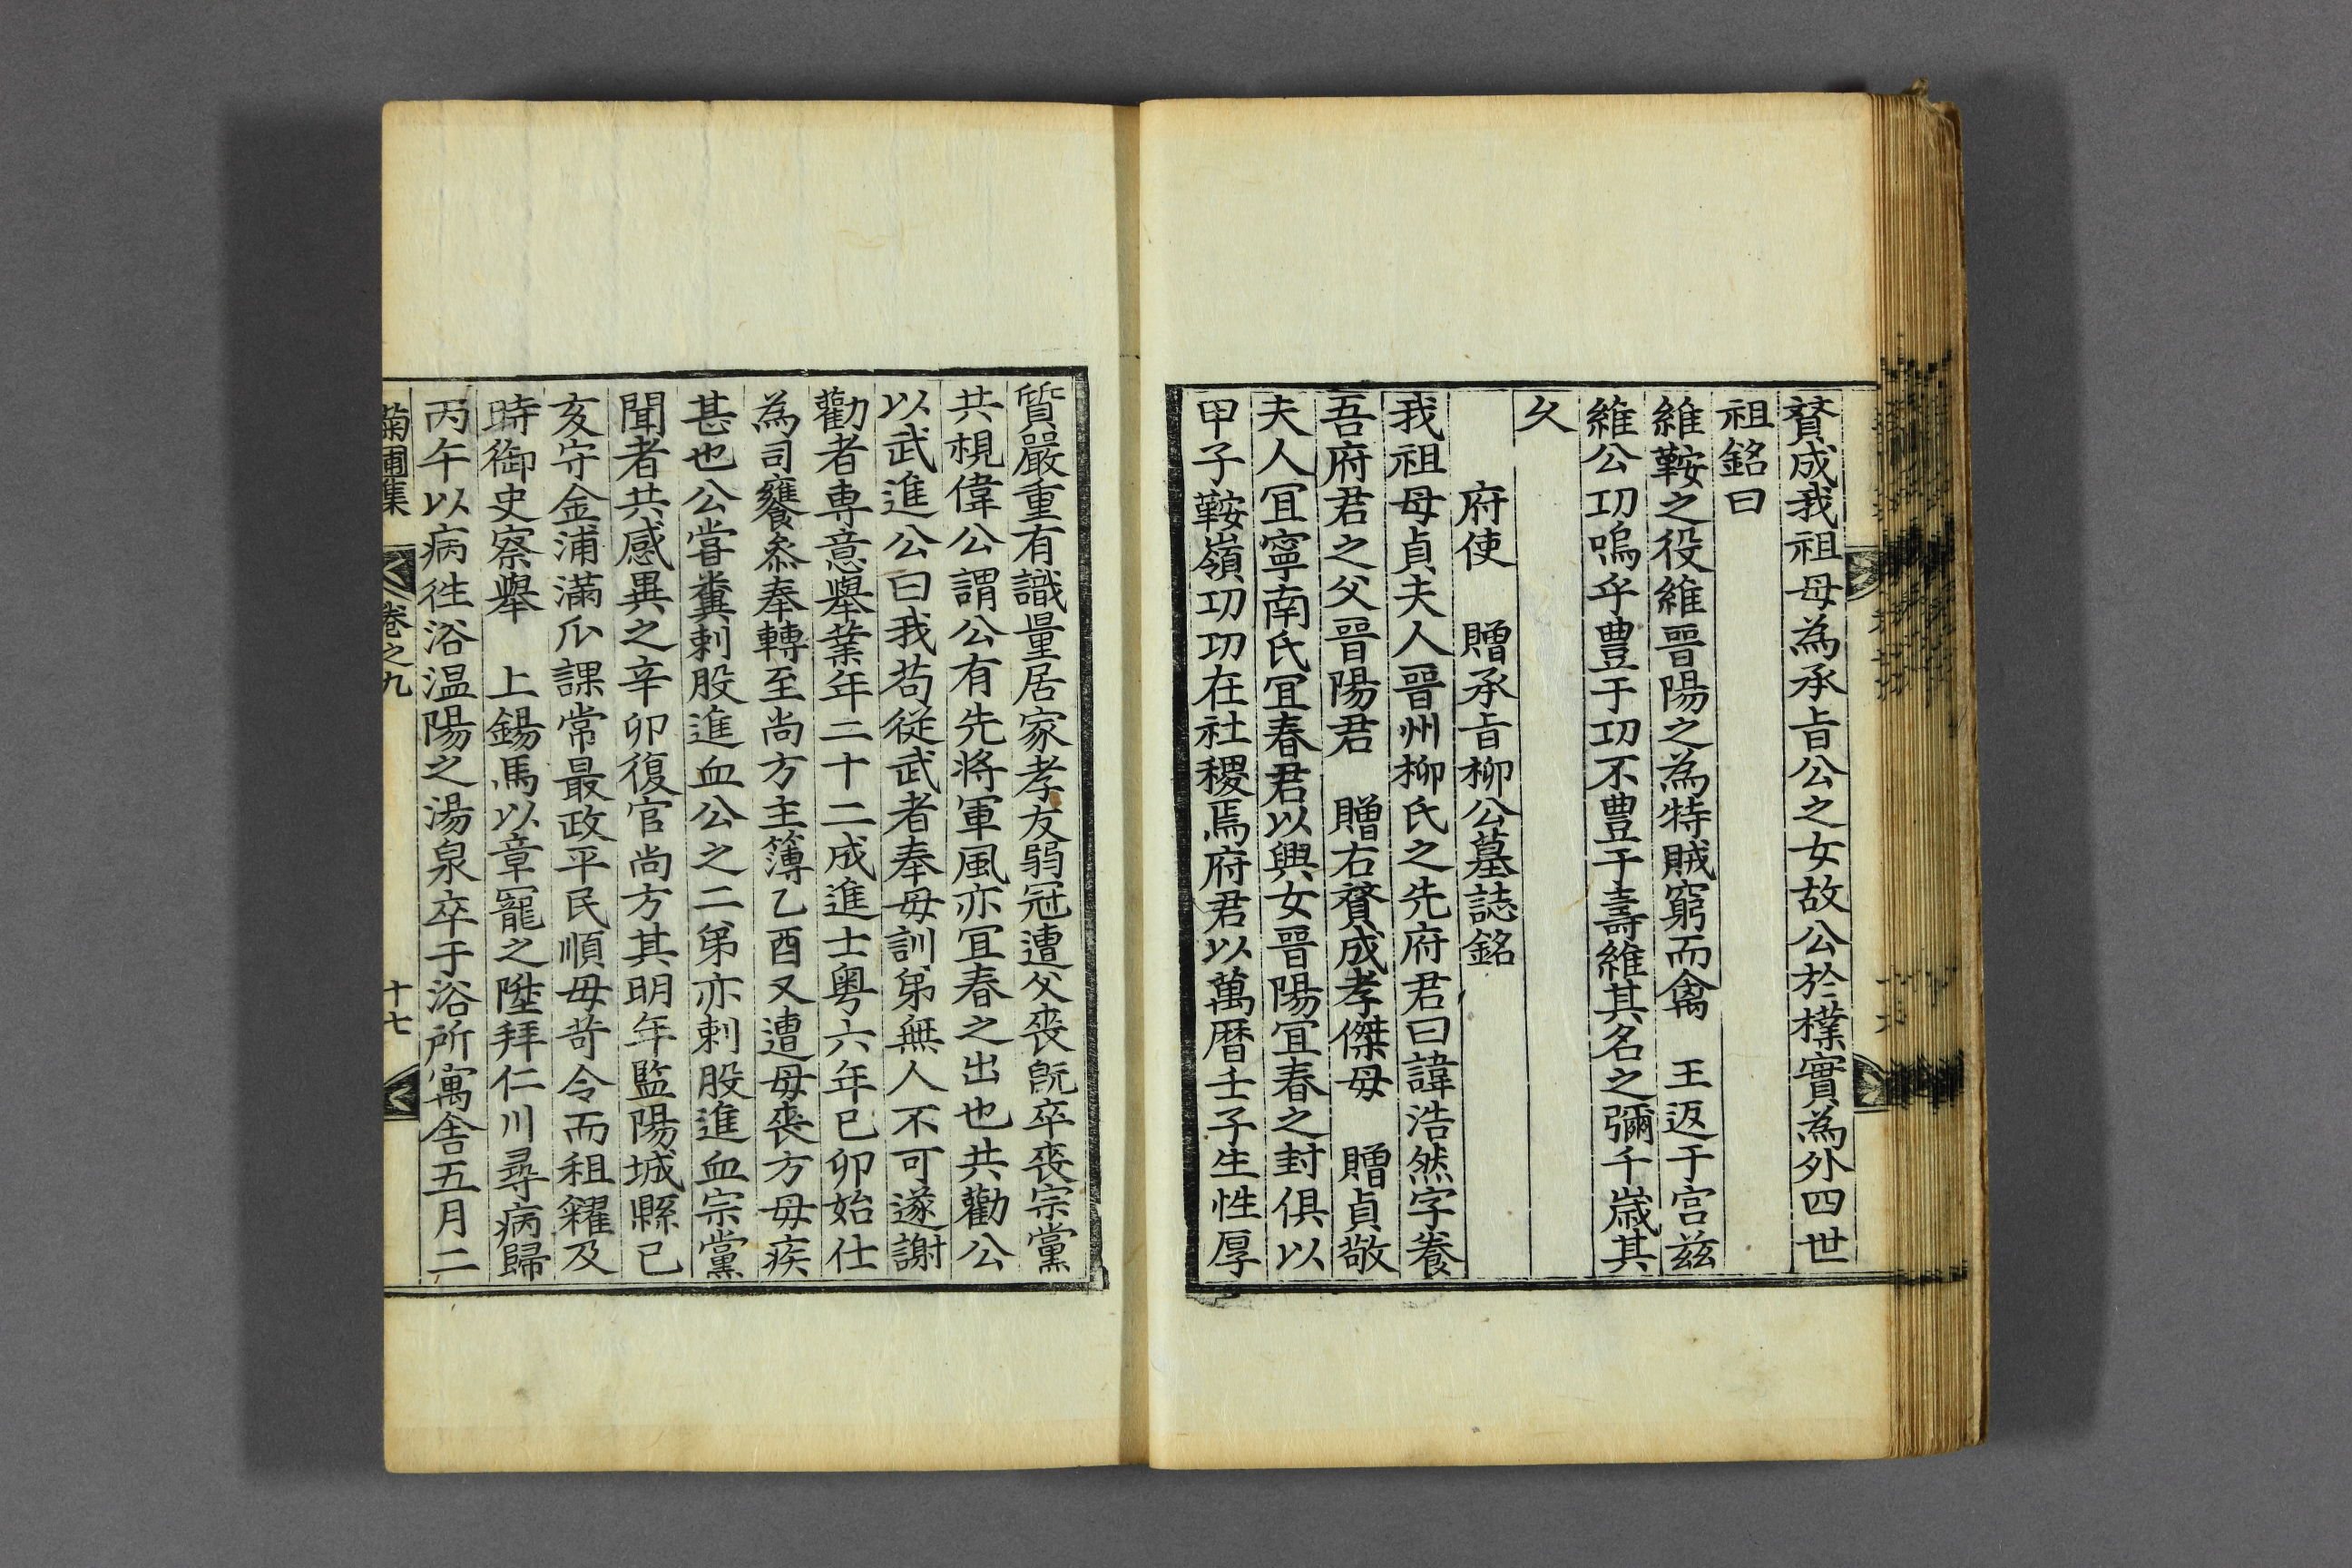 賛成我祖母為承旨公之女故公於樸實為外四世
祖銘曰
維鞍之役維晉陽之為特賊窮而禽　王返于宮茲
維公功嗚乎豊于功不豊于壽維其名之彌千歲其
久
府使　贈承旨柳公墓誌銘
我祖母貞夫人晉州柳氏之先府君曰諱浩然字養
吾府君之父晉陽君　贈右賛成孝傑母　贈貞敬
夫人宜寧南氏宜春君以興女晉陽宜春之封俱以
甲子鞍嶺功功在社稷焉府君以萬曆壬子生性厚
質嚴重有識量居家孝友弱冠遭父喪旣卒喪宗黨
共覌偉公謂公有先將軍風亦宜春之出也共勸公
以武進公曰我苟從武者奉母訓弟無人不可遂謝
勸者專意舉業年三十二成進士粤六年己卯始仕
為司饔叅奉轉至尚方主簿乙酉又遭母喪方母疾
甚也公嘗糞刺股進血公之二弟亦刺股進血宗黨
聞者共感異之辛卯復官尚方其明年監陽城縣己
亥守金浦滿瓜課常最政平民順毋苛令而租糴及
時御史察舉　上錫馬以章寵之陞拜仁川尋病歸
丙午以病徃浴温陽之湯泉卒于浴所寓舎五月二
菊圃集　卷之九　十七